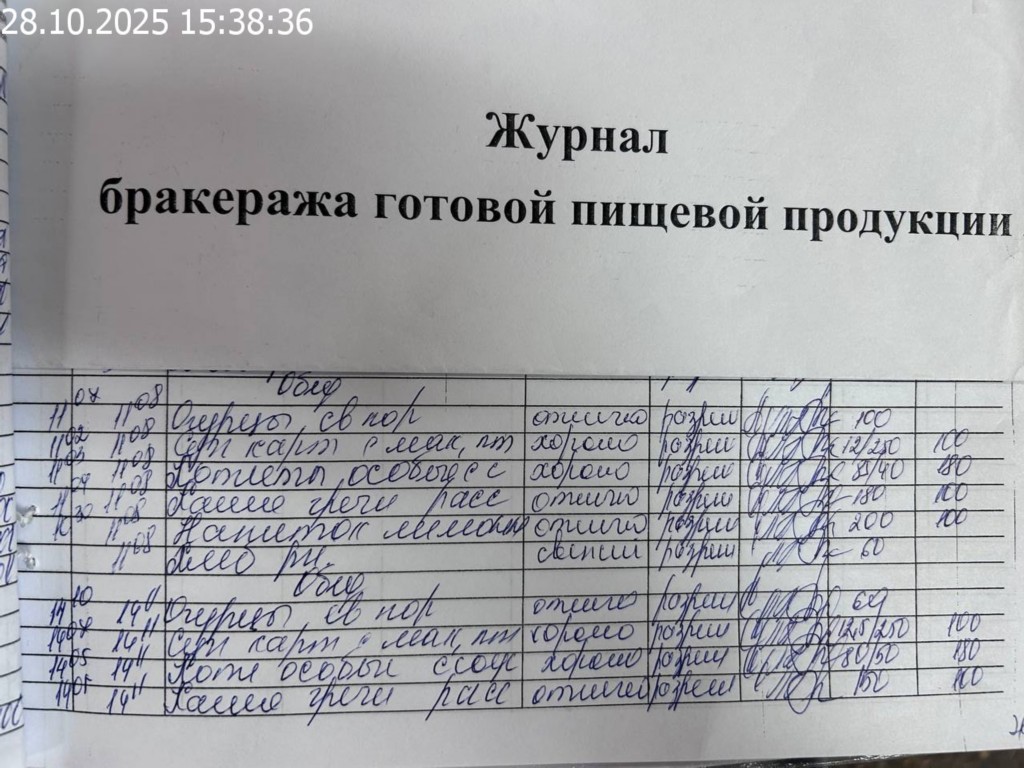 28.10.2025 15:38:36
Журнал
бракеража готовой пищевой продукции
Обед
11 07 11 08 Огурцы св пор отлично разреш 100
11 02 11 08 Суп карт с мак, пт хорошо разреш 12/250 100
11 03 11 08 Котлеты особые с с хорошо разреш 100
11 04 11 08 Каша гречн расс отлично разреш 180 100
30 11 08 Напиток лимонн отлично разреш 200 100
11 08 разреш 60
Обед
14 10 14 11 Огурцы св пор отлично разреш 60
14 07 14 11 Суп карт с мак, пт хорошо разреш 12,5/250 100
14 05 14 11 Котл особый с соус хорошо разреш 80/50 180
14 05 14 11 Каша гречн расс отлично разреш 150 100